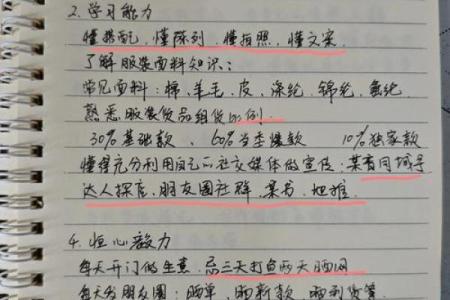 2. 学习能力
懂搭配、懂陈列、懂拍照、懂文案
了解服装面料知识：
常见面料：棉、羊毛、皮、涤纶、锦纶、氨纶
熟悉服装货品组货比例：
30%基础款、60%当季爆款 10%独家款
懂得充分利用自己的社交媒体做宣传：某音同城号
达人探店、朋友圈社群、某书、地推、
4. 恒心毅力
每天开门做生意、忌三天打鱼两天晒网
每天发朋友圈：晒单、晒新款、晒到货等